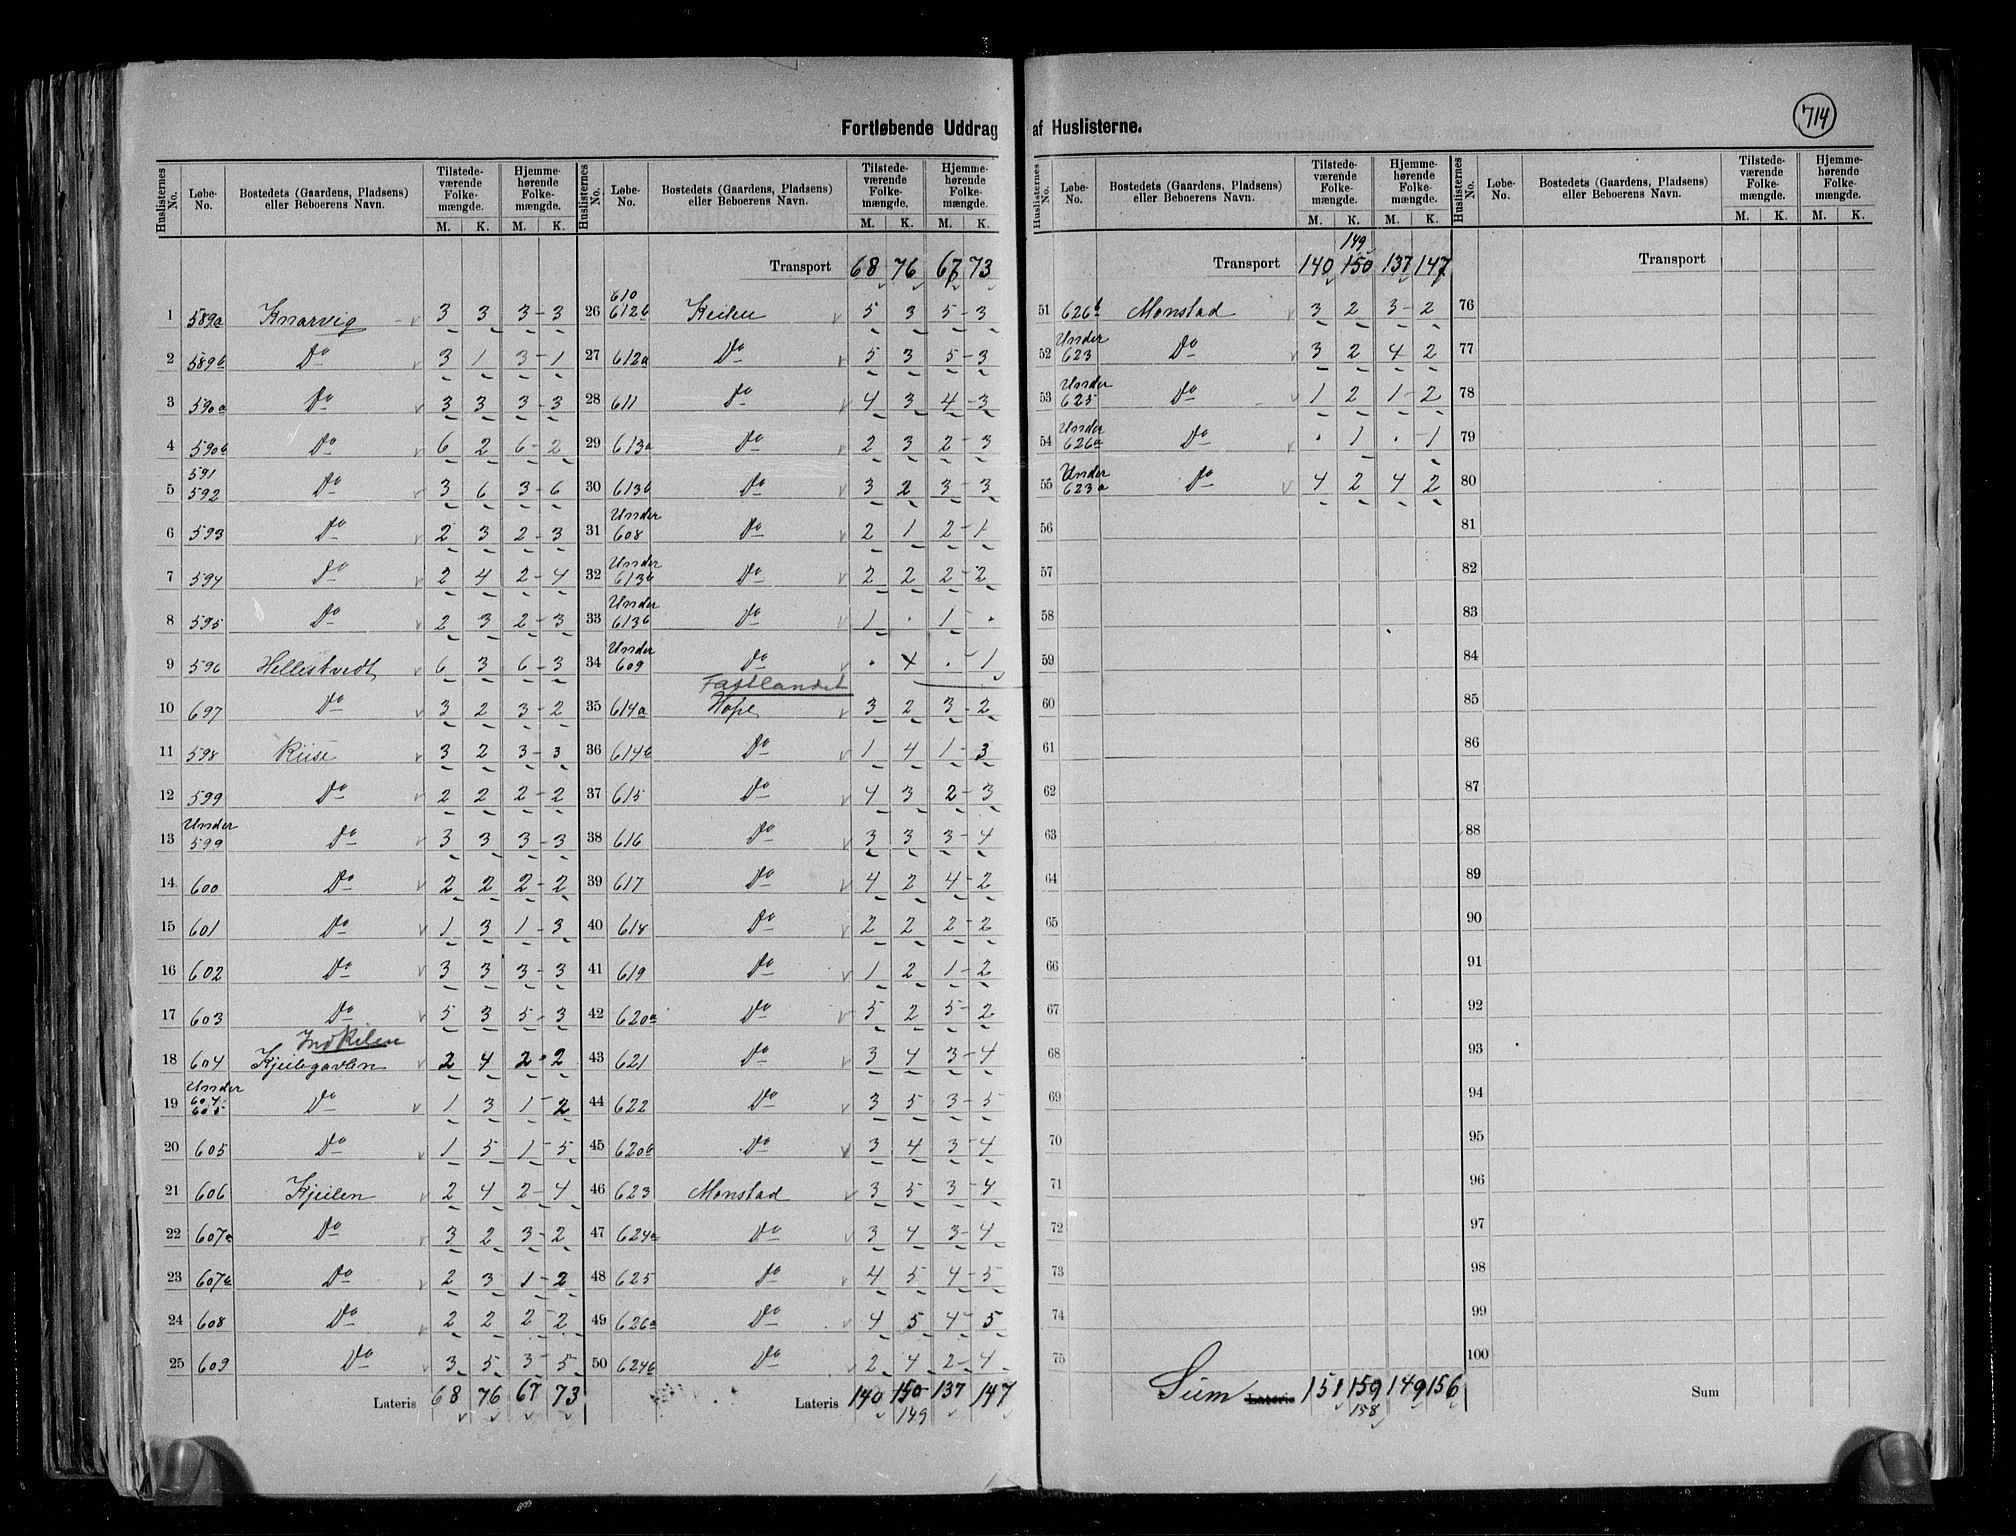 714
Fortløbende Uddrag af Huslisterne.
Huslisternes No. Løbe-No. Bostedets (Gaardens, Pladsens) eller Beboerens Navn. Tilstedeværende Folkemængde. M. K. Hjemmehørende Folkemængde. M. K.
1 589a Knarvig 3 3 3-3
2 589b Do 3 1 3-1
3 590a Do 3 3 3-3
4 590b Do 6 2 6-2
5 591 592 Do 3 6 3-6
6 593 Do 2 3 2-3
7 594 Do 2 4 2-4
8 595 Do 2 3 2-3
9 596 Hellestvedt 6 3 6-3
10 697 Do 3 2 3-2
11 598 Riise 3 2 3-3
12 599 Do 2 2 2-2
13 Under 599 Do 3 3 3-3
14 600 Do 2 2 2-2
15 601 Do 1 3 1-3
16 602 Do 3 3 3-3
17 603 Do 5 3 5-3
Indkilen
18 604 Kjeilegavlen 2 4 2-2
19 Under 604 605 Do 1 3 1-2
20 605 Do 1 5 1-5
21 606 Kjeilen 2 4 2-4
22 607a Do 3 2 3-2
23 607b Do 2 3 1-2
24 608 Do 2 2 2-2
25 609 Do 3 5 3-5
Lateris 68 76 67 73
Huslisternes No. Løbe-No. Bostedets (Gaardens, Pladsens) eller Beboerens Navn. Tilstedeværende Folkemængde. M. K. Hjemmehørende Folkemængde. M. K.
Transport 68 76 67 73
26 610 612b Keilen 5 3 5-3
27 612a Do 5 3 5-3
28 611 Do 4 3 4-3
29 613a Do 2 3 2-3
30 613b Do 3 2 3-3
31 Under 608 Do 2 1 2-1
32 Under 613b Do 2 2 2-2
33 Under 613b Do 1 . 1- .
34 Under 609 Do . . 1
Fastlandet
35 614a Hope 3 2 3-2
36 614b Do 1 4 1-3
37 615 Do 4 3 2-3
38 616 Do 3 3 3-4
39 617 Do 4 2 4-2
40 618 Do 2 2 2-2
41 619 Do 1 2 1-2
42 620a Do 5 2 5-2
43 621 Do 3 4 3-4
44 622 Do 3 5 3-5
45 620b Do 3 4 3-4
46 623 Monstad 3 5 3-4
47 624a Do 3 4 3-4
48 625 Do 4 5 4-5
49 626a Do 4 5 4-5
50 624b Do 2 4 2-4
Lateris 140 150 137 147
149
Huslisternes No. Løbe-No. Bostedets (Gaardens, Pladsens) eller Beboerens Navn. Tilstedeværende Folkemængde. M. K. Hjemmehørende Folkemængde. M. K.
149
Transport 140 150 137 147
51 626b Monstad 3 2 3-2
52 Under 623 Do 3 2 4 2
53 Under 625 Do 1 2 1-2
54 Under 626a Do . 1 . 1
55 Under 623a Do 4 2 4 2
56
57
58
59
60
61
62
63
64
65
66
67
68
69
70
71
72
73
74
75
Sum Lateris 151 159 149 156
158
Huslisternes No. Løbe-No. Bostedets (Gaardens, Pladsens) eller Beboerens Navn. Tilstedeværende Folkemængde. M. K. Hjemmehørende Folkemængde. M. K.
Transport
76
77
78
79
80
81
82
83
84
85
86
87
88
89
90
91
92
93
94
95
96
97
98
99
100
Sum